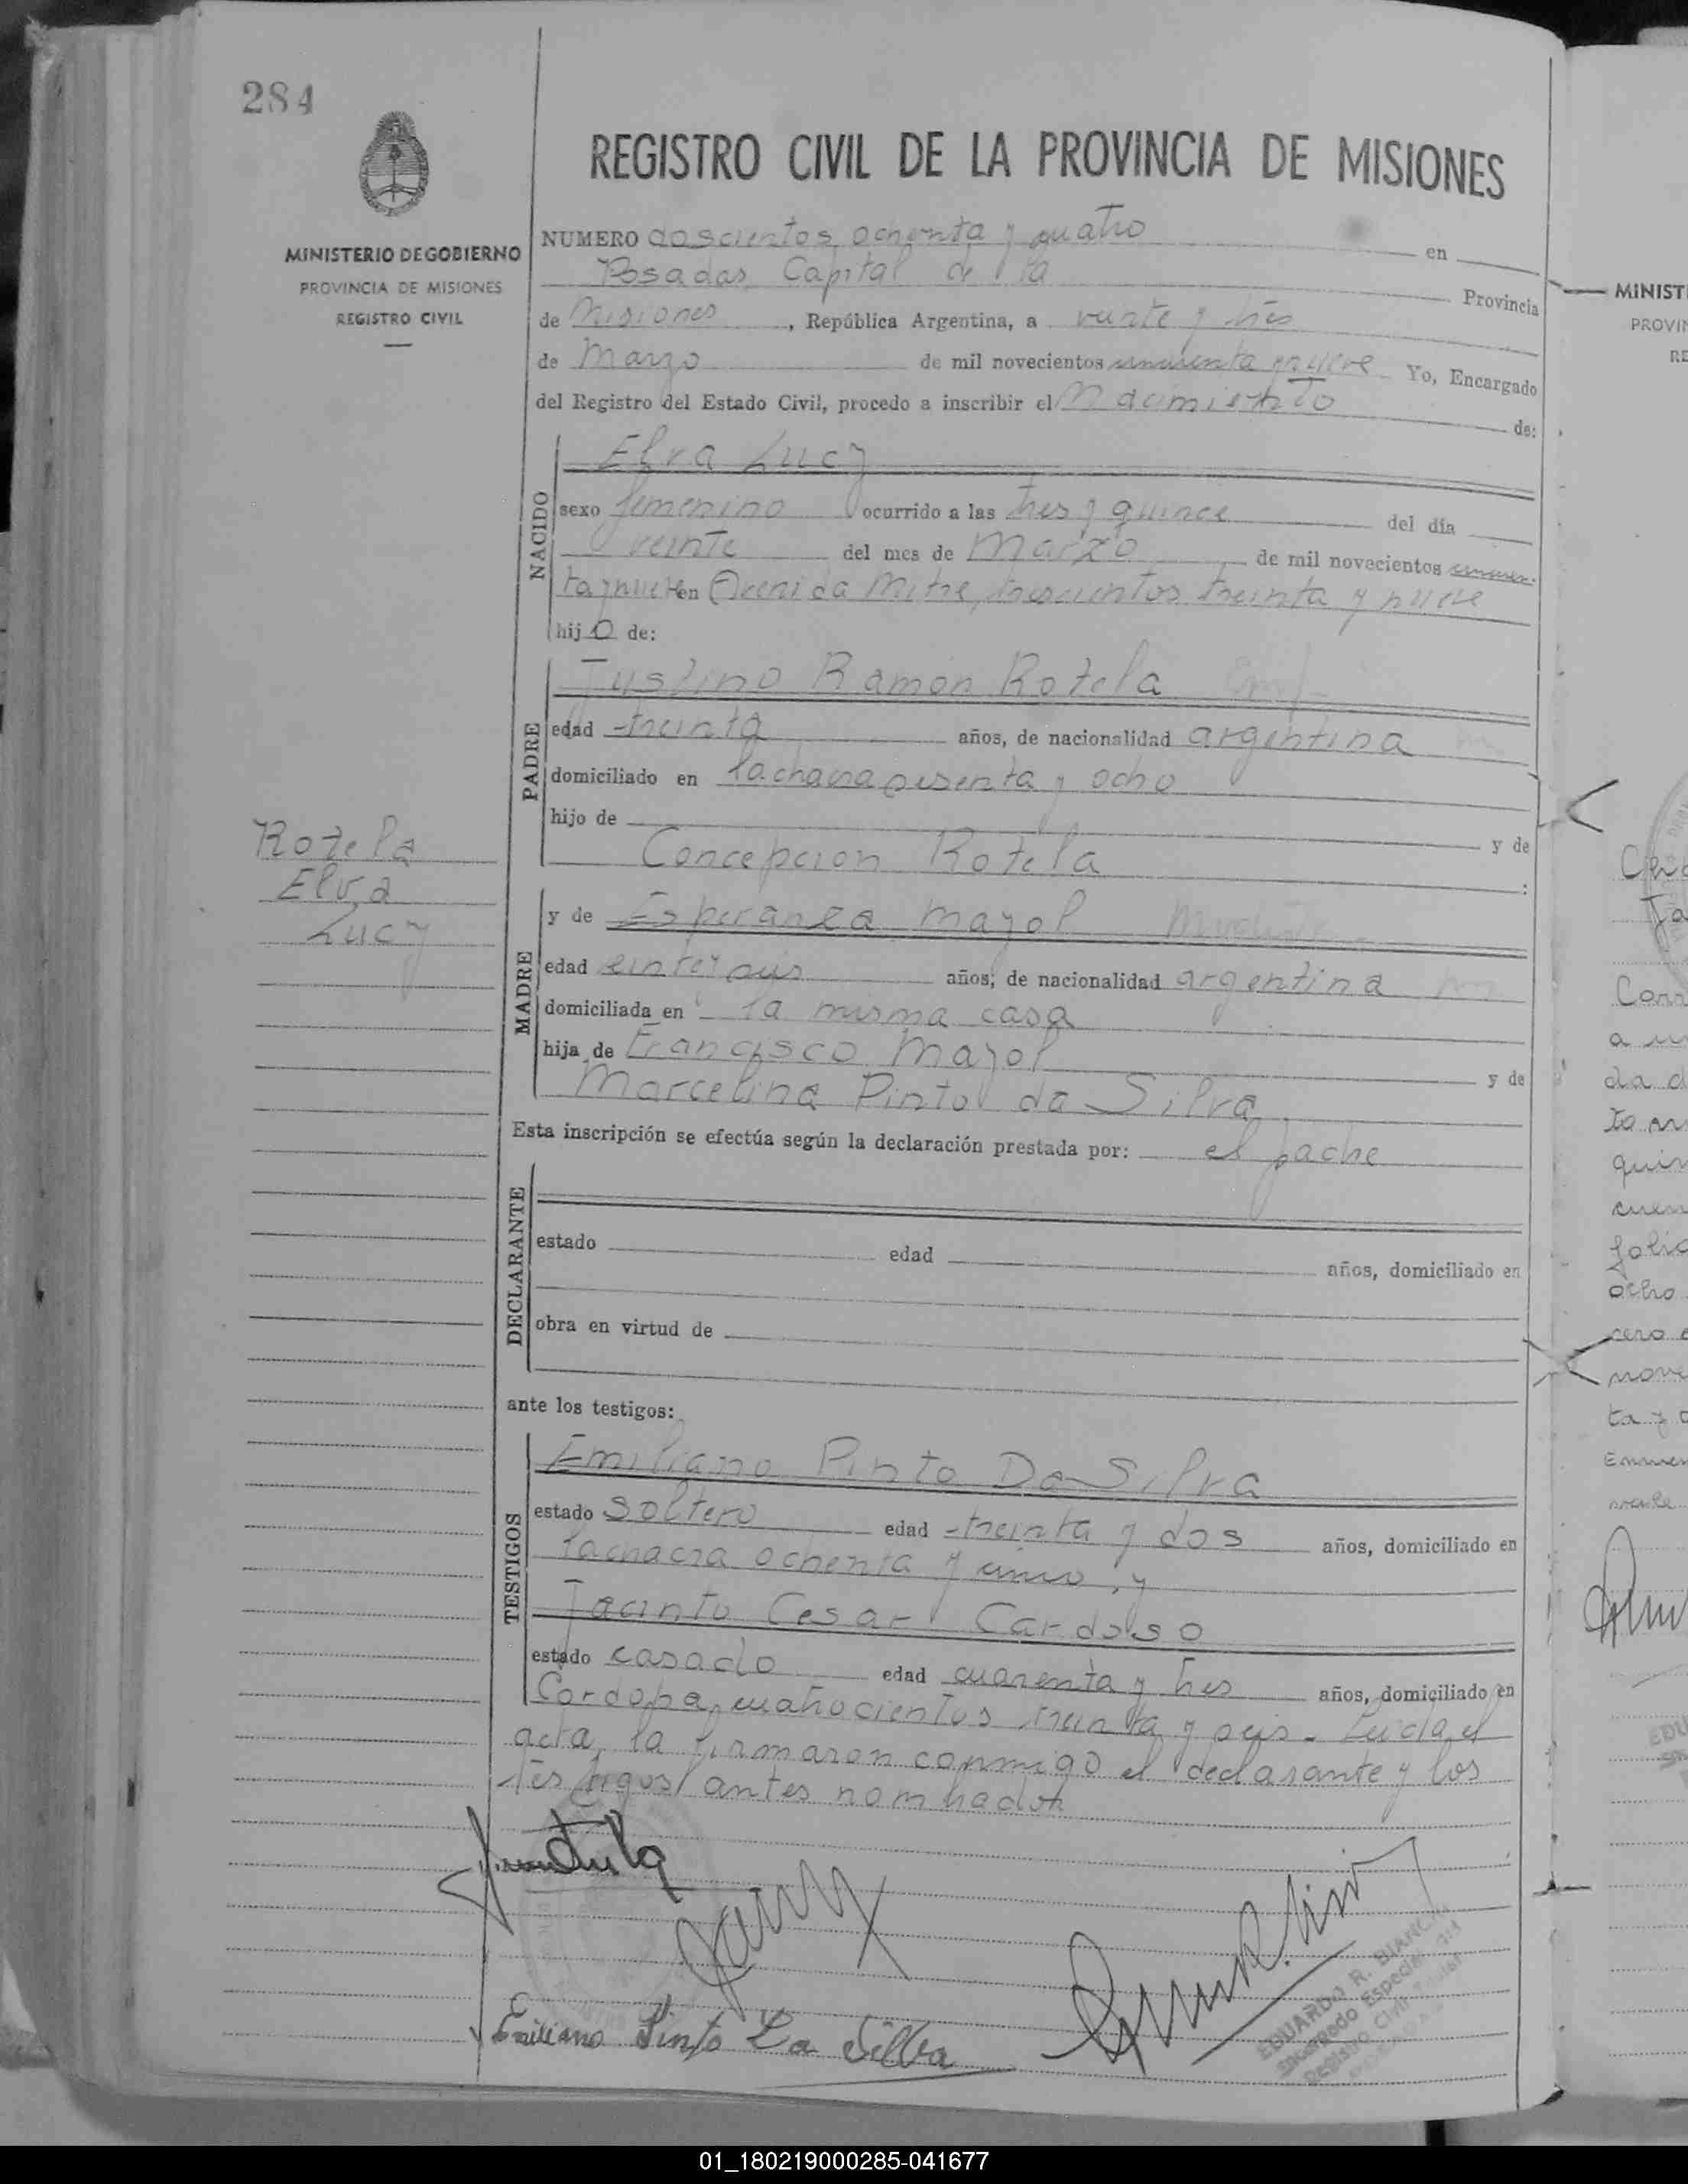 284
REGISTRO CIVIL DE LA PROVINCIA DE MISIONES
MINISTERIO DE GOBIERNO
PROVINCIA DE MISIONES
REGISTRO CIVIL
NUMERO doscientos ochenta y cuatro en
Posadas, Capital de la Provincia
de Misiones, República Argentina, a veinte y tres
de Marzo de mil novecientos cincuenta y nueve Yo, Encargado
del Registro del Estado Civil, procedo a inscribir el Nacimiento de:
NACIDO
Elva Lucy
sexo femenino ocurrido a las tres y quince del día
veinte del mes de Marzo de mil novecientos cincuen-
ta y nueve en Avenida Mitre, trescientos treinta y nueve
hij a de:
PADRE
Justino Ramón Rotela
edad treinta años, de nacionalidad argentina
domiciliado en la chacra sesenta y ocho
hijo de y de
Concepcion Rotela :
Rotela
Elva
Lucy
MADRE
y de Esperanza Mayol
edad veinte y seis años, de nacionalidad argentina
domiciliada en la misma casa
hija de Francisco Mayol y de
Marcelina Pinto da Silva
Esta inscripción se efectúa según la declaración prestada por: el padre
DECLARANTE
estado edad años, domiciliado en
obra en virtud de
ante los testigos:
TESTIGOS
Emiliano Pinto Da Silva
estado soltero edad treinta y dos años, domiciliado en
la chacra ochenta y cinco, y
Jacinto Cesar Cardoso
estado casado edad cuarenta y tres años, domiciliado en
Cordoba, cuatrocientos treinta y seis.- Leida el
acta, la firmaron conmigo el declarante y los
testigos antes nombrados
Emiliano Pinto Da Silba
EDUARDO R. BIANCHI
Encargado Especial
Registro Civil
MINIST
PROVIN
RE
01_180219000285-041677